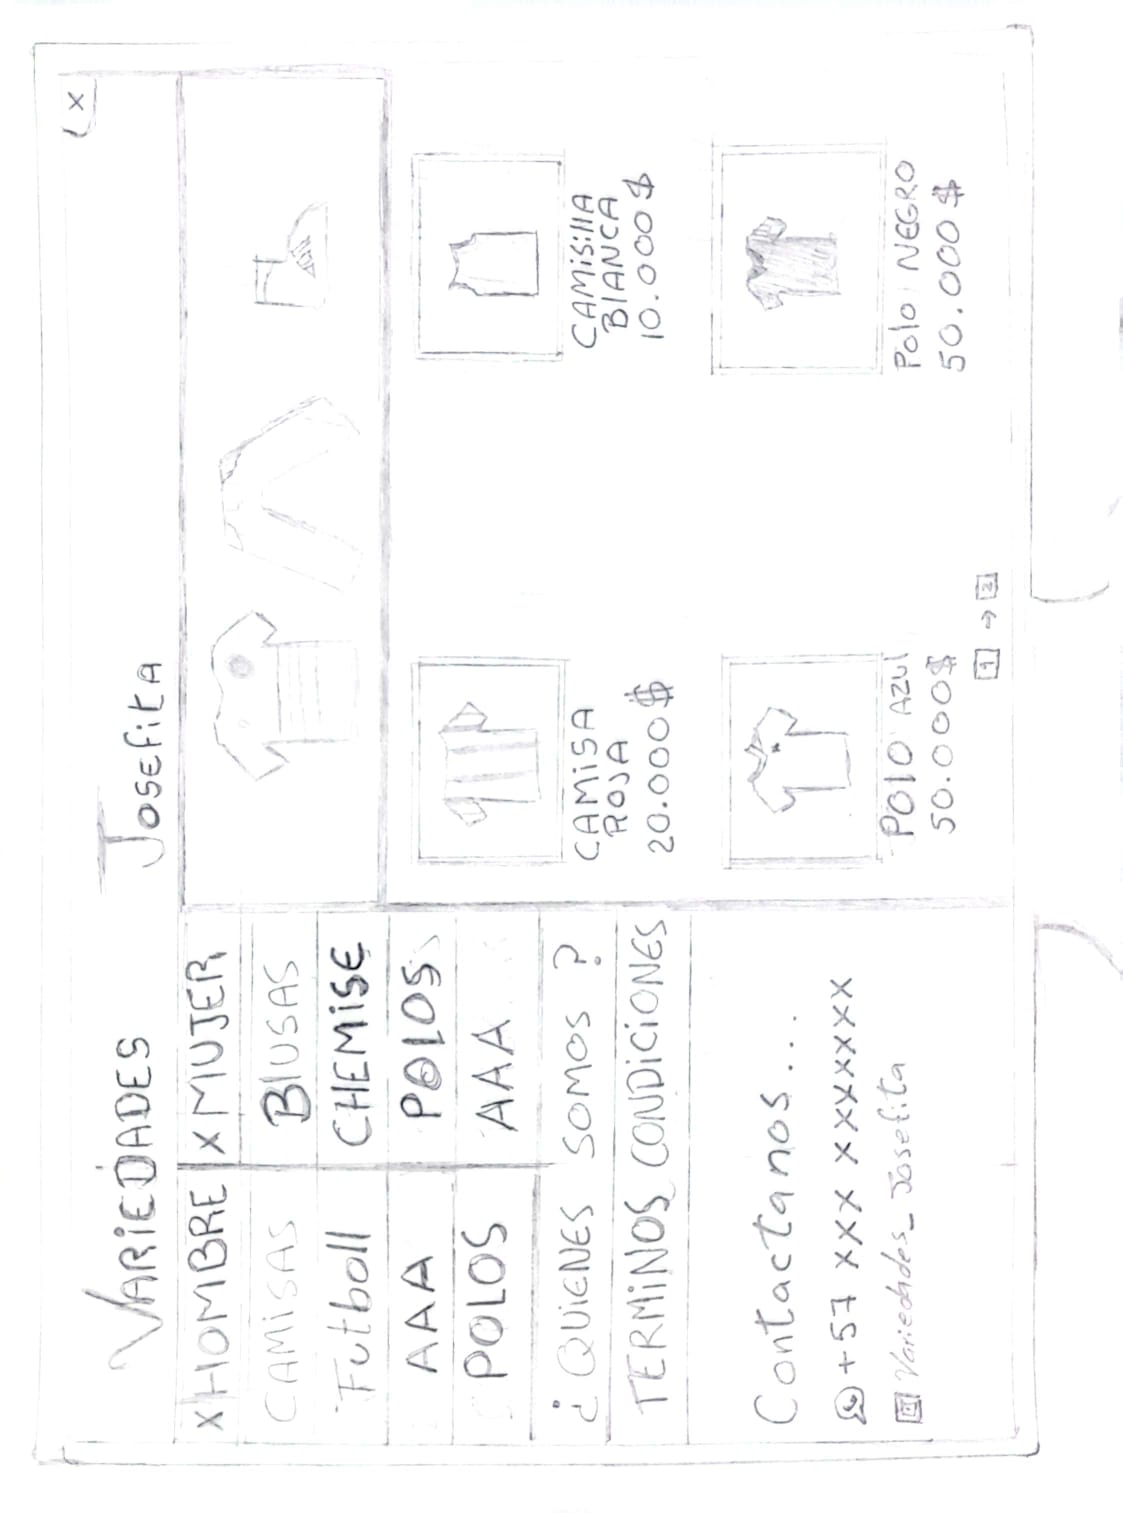 VARIEDADES Josefita
x
x HOMBRE x MUJER
CAMISAS BlUSAS
Futboll CHEMISE
AAA POLOS
POLOS AAA
¿ QUIENES SOMOS ?
TERMINOS CONDICIONES
Contactanos...
+57 xxx xxxxxxx
Variedades_Josefita
CAMISA
ROJA
20.000$
CAMisillA
BlANCA
10.000$
POlO AZUl
50.000$
Polo NEGRO
50.000$
1 → 2